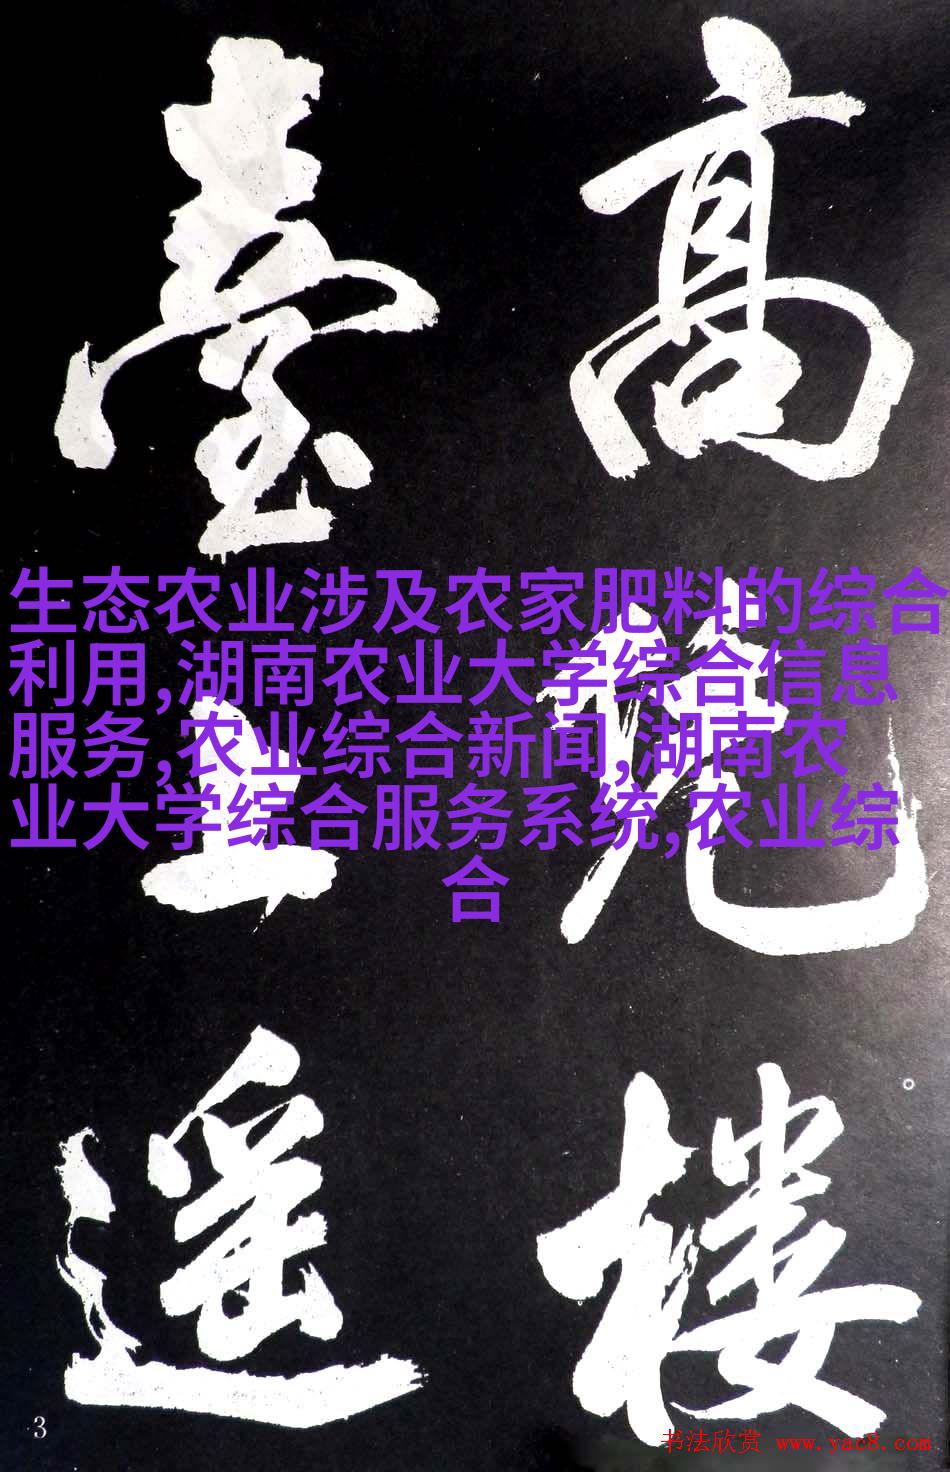 高
楼
臺上遥
生态农业涉及农家肥料的综合
利用,湖南农业大学综合信息
服务,农业综合新闻,湖南农
业大学综合服务系统,农业综
合
3
书法欣赏 www.yac8.com